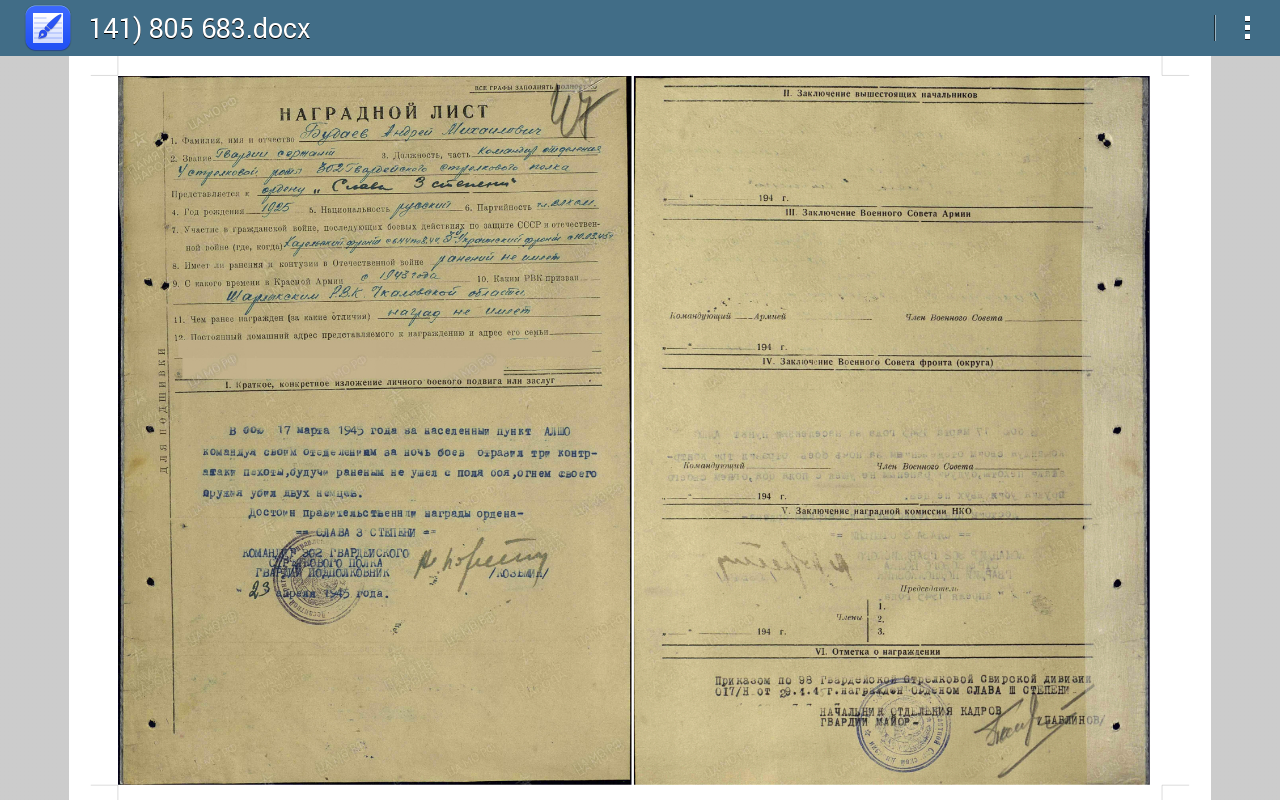 141) 805 683.docx
ВСЕ ГРАФЫ ЗАПОЛНЯТЬ ПОЛНОСТЬЮ
47
НАГРАДНОЙ ЛИСТ
1. Фамилия, имя и отчество Бубаев Андрей Михайлович
2. Звание Гвардии сержант 3. Должность, часть Командир отделения
4 стрелковой роты 302 Гвардейского стрелкового полка
Представляется к ордену „Слава 3 степени"
4. Год рождения 1925 5. Национальность русский 6. Партийность чл.влксм.
7. Участие в гражданской войне, последующих боевых действиях по защите СССР и отечествен-
ной войне (где, когда) Карельский фронт 3й Украинский фронт
8. Имеет ли ранения и контузии в Отечественной войне ранений не имеет
9. С какого времени в Красной Армии с 1943 года 10. Каким РВК призван
Шарлыкским РВК Чкаловской области.
11. Чем ранее награжден (за какие отличия) наград не имеет
12. Постоянный домашний адрес представляемого к награждению и адрес его семьи
ДЛЯ ПОДШИВКИ
I. Краткое, конкретное изложение личного боевого подвига или заслуг
В бою 17 марта 1945 года за населенный пункт АЛШО
командуя своим отделением за ночь боев отразил три контр-
атаки пехоты,будучи раненым не ушел с поля боя,огнем своего
оружия убил двух немцев.
Достоин правительственной награды ордена-
== СЛАВА 3 СТЕПЕНИ ==
КОМАНДИР 302 ГВАРДЕЙСКОГО
СТРЕЛКОВОГО ПОЛКА
ГВАРДИИ ПОДПОЛКОВНИК /КОЗЬМИН/
" 23 апреля 1945 года.
II. Заключение вышестоящих начальников
„ " 194 г.
III. Заключение Военного Совета Армии
Командующий Армией Член Военного Совета
„ " 194 г.
IV. Заключение Военного Совета фронта (округа)
Командующий Член Военного Совета
„ " 194 г.
V. Заключение наградной комиссии НКО
Председатель
Члены
1.
2.
3.
„ " 194 г.
VI. Отметка о награждении
Приказом по 98 Гвардейской Стрелковой Свирской дивизии
017/Н от г.награжден Орденом СЛАВА Ш СТЕПЕНИ
НАЧАЛЬНИК ОТДЕЛЕНИЯ КАДРОВ
ГВАРДИИ МАЙОР- /ПАВЛИНОВ/